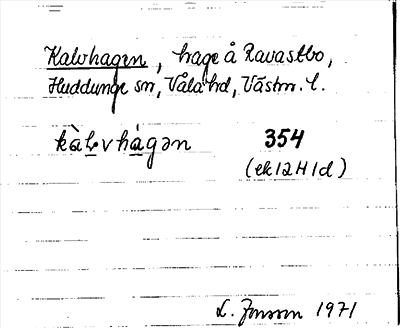 Kalvhagen, hage å Ravastbo,
Huddunge sn, Våla hd, Västm. l.
kàlvhàgən 354
(ek 12 H 1d)
L. Jonson 1971